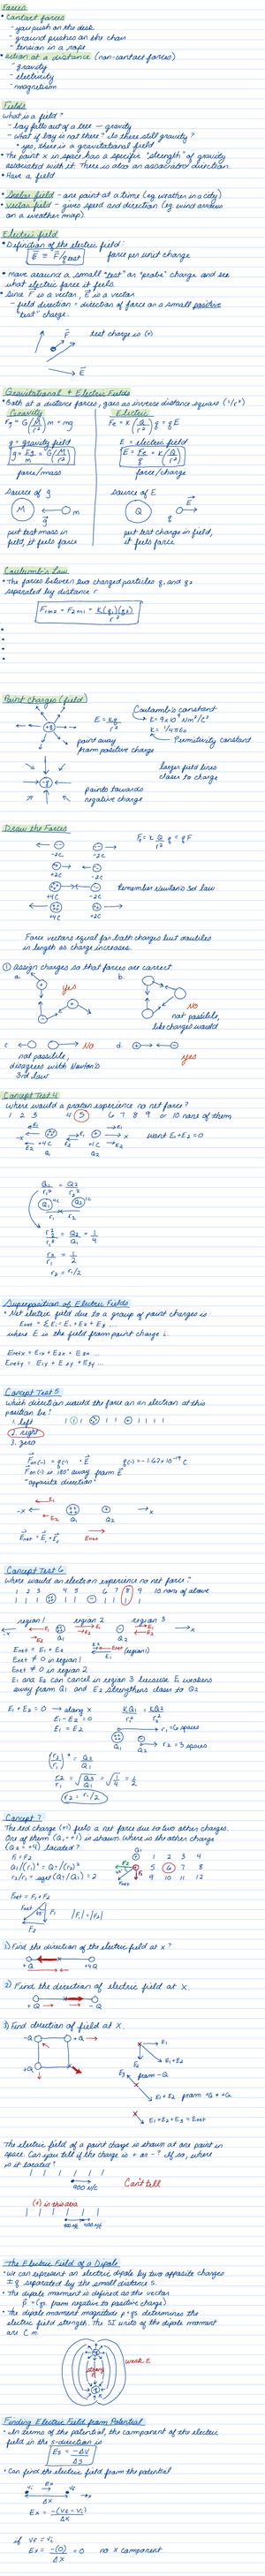 Forces
• Contact forces
- you push on the desk
- ground pushes on the chair
- tension in a rope
• action at a distance (non-contact forces)
- gravity
- electricity
- magnetism
Fields
What is a field?
- ball falls out of a tree - gravity
• yes, there is a gravitational field
• The point x in space has a specific "strength" of gravity
associated with it. There is also an associated direction.
• Have a field
• Scalar field - one point at a time (eg weather in a city)
• Vector field - gives speed and direction (eg wind arrows
on a weather map).
Electric field
• Definition of the electric field:
E = F/q test force per unit charge
• move around a small "test" or "probe" charge and see
what electric force it feels.
• Since F is a vector, E is a vector
- field direction = direction of force on a small positive
"test" charge.
F test charge is (+)
E
Gravitational + Electric Fields
• Both at a distance forces, goes as inverse distance square (1/r²)
Gravity Electric
Fg = G(M/r²)m = mg Fe = K(Q/r²)q = qE
g = gravity field E = electric field
g = Fg/m = G(M/r²) E = Fe/q = K(Q/r²)
force/mass force/charge
source of g source of E
M m Q q E
g
put test mass in put test charge in field,
field, it feels force it feels force
Coulomb's Law
• The forces between two charged particles q1 and q2
separated by distance r
F1on2 = F2on1 = K(q1)(q2)/r²
Point charges (field)
Coulomb's constant
E = Kq/r² K = 9x10⁹ Nm²/C²
K = 1/4πε0
point away Permittivity constant
from positive charge
larger field lines
closer to charge
points towards
negative charge
Draw the Forces
-2C -2C
+2C -2C
+4C -2C remember Newton's 3rd law
+4C +2C
Force vectors equal for both charges but doubles
in length as charge increases.
① Assign charges so that forces are correct
a. yes b. No
not possible,
like charges would
c. No d. yes
not possible,
disagrees with Newton's
3rd law
Concept Test 4
Where would a proton experience no net force?
1 2 3 4 5 6 7 8 9 or 10 none of them
-x E1 E2 +4C +1C x want E1+E2=0
Q1 Q2
Q1/r1² = Q2/r2²
r2²/r1² = Q2/Q1 = 1/4
r2/r1 = 1/2
r2 = r1/2
Superposition of Electric Fields
• Net electric field due to a group of point charges is:
Enet = ΣEi = E1 + E2 + E3 ...
where E is the field from point charge i.
Enetx = E1x + E2x + E3x ...
Enety = E1y + E2y + E3y ...
Concept Test 5
Which direction would the force on an electron at this
position be?
1. left
2. right
3. zero
Fon(-) is 180° away from E
"opposite direction"
E1
-x E2 Q1 Q2 x
Enet = E1 + E2 Enet
Concept Test 6
Where would an electron experience no net force?
1 2 3 4 5 6 7 8 9 10 none of above
region 1 region 2 region 3
Q1 Q2
Enet = E1 + E2
Enet ≠ 0 in region 1
Enet ≠ 0 in region 2
E1 and E2 can cancel in region 3 because E1 weakens
away from Q1 and E2 strengthens closer to Q2
E1 + E2 = 0 → along x KQ1/r1² = KQ2/r2²
E1 - E2 = 0
E1 = E2 r1 = 6 spaces
Q1 Q2 r2 = 3 spaces
(r2/r1)² = Q2/Q1
r2/r1 = √Q2/Q1 = √1/4 = 1/2
r2 = r1/2
Concept 7
The red charge (+1) feels a net force due to two other charges.
One of them (Q1=+1) is shown. Where is the other charge
(Q2=+4) located?
F1 = F2 Q1 1 2 3 4
Q1/(r1)² = Q2/(r2)² 5 6 7 8
r2/r1 = sqrt(Q2/Q1) = 2 9 10 11 12
Fnet = F1 + F2
Fnet F1 |F1| = |F2|
F2
1) Find the direction of the electric field at x?
+Q +4Q
2) Find the direction of electric field at x.
+Q -Q
3) Find direction of field at x.
-Q +Q E1
E2 E1+E2
+Q E3 from -Q
E1+E2 from +Q +Q
E1+E2+E3 = Enet
The electric field of a point charge is shown at one point in
space. Can you tell if the charge is + or -? If so, where
is it located?
900 N/C Can't tell
(+) in this area
900 N/C 400 N/C
The Electric Field of a Dipole
• We can represent an electric dipole by two opposite charges
±q separated by the small distance s.
• The dipole moment is defined as the vector
p = (qs, from negative to positive charge)
• The dipole moment magnitude p=qs determines the
electric field strength. The SI units of the dipole moment
are C m.
weak E
strong E
Finding Electric Field from Potential
• In terms of the potential, the component of the electric
field in the s-direction is
Es = -ΔV/Δs
• Can find the electric field from the potential
Vi Ex Vf
Δx x
Ex = -(Vf - Vi)/Δx
if Vf = Vi
Ex = -(0)/Δx = 0 no x component